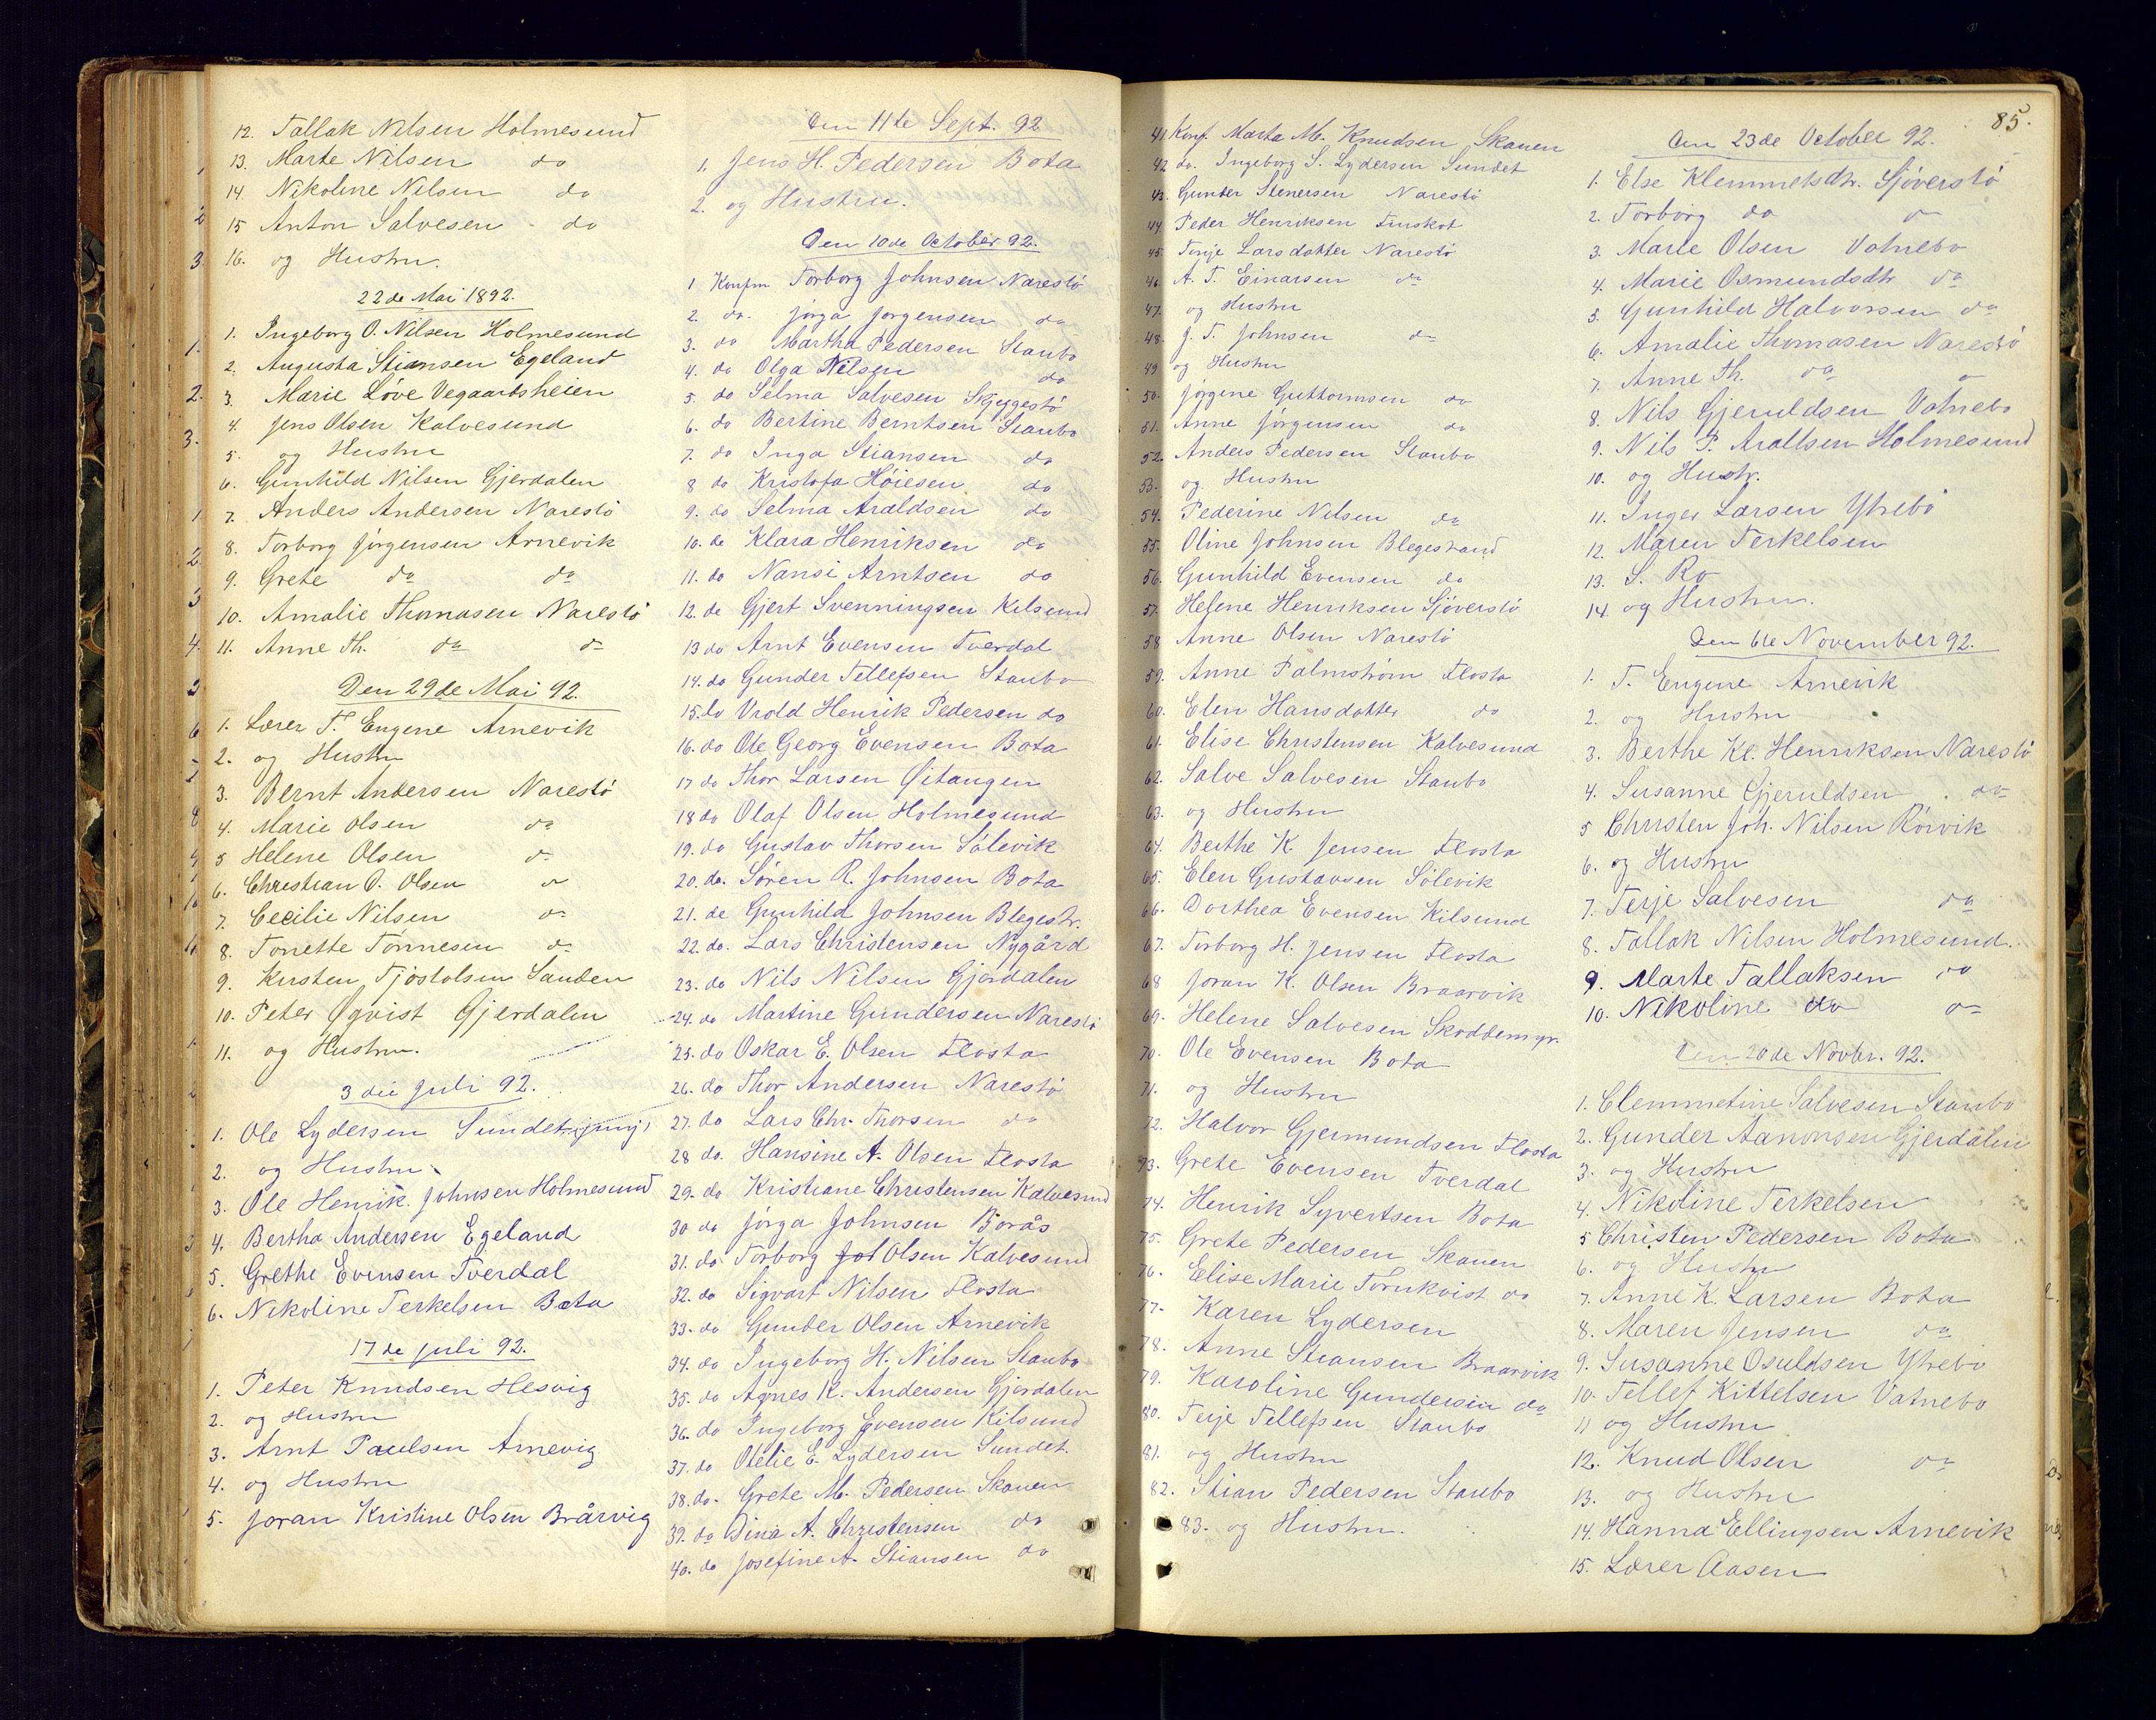 12. Tallak Nilsen Holmesund
13. Marte Nilsen do
14 Nikoline Nilsen do
15 Anton Salvesen - do
16. og Hustru.
22de Mai 1892.
1. Ingeborg O. Nilsen Holmesund
2. Augusta Stiansen Egeland
3. Marie Løve Vegaardsheien
4. Jens Olsen Kalvesund
5. og Hustru
6. Gunhild Nilsen Gjerdalen
7. Anders Andersen Narestö
8. Torborg Jörgensen Arnevik
9. Grete do do
10. Amalie Thomasen Narestö
11. Anne Th. do do
Den 29de Mai 92.
1. Lærer T. Eugene Arnevik
2. og Hustru
3. Bernt Andersen Narestö
4. Marie Olsen do
5 Helene Olsen do
6. Christian O. Olsen do
7. Cecilie Nilsen do
8. Tonette Tönnesen do
9. Kirsten Tjöstolsen Sanden
10. Peter Øqvist Gjerdalen
11. og Hustru.
3die Juli 92.
1. Ole Lydersen Sundet
2. og Hustru
3. Ole Henrik Johnsen Holmesund
4. Bertha Andersen Egeland
5. Grethe Evensen Tverdal
6. Nikoline Terkelsen Bota
17de Juli 92.
1. Peter Knudsen Hesvig
2. og Hustru
3. Arnt Paulsen Arnevig
4. og Hustru
5. Joran Kristine Olsen Brårvig
Den 11te Sept. 92
1. Jens H. Pedersen Bota
2. og Hustru.
Den 10de October 92.
1 Konfm Torborg Johnsen Narestö
2. do. Jörga Jörgensen do
3. do Martha Pedersen Staubo
4. do Olga Nilsen do
5. do Selma Salvesen Skjeggestö
6. do Bertine Berntsen Staubo
7. do Inga Stiansen do
8 do Kristofa Höiesen do
9. do Selma Araldsen do
10. do Klara Henriksen do
11. do Nansi Arntsen do
12. do Gjert Svenningsen Kilsund
13 do Arnt Evensen Tverdal
14. do Gunder Tellefsen Staubo
15. do Vrold Henrik Pedersen do
16. do Ole Georg Evensen Bota
17 do Thor Larsen Øitangen
18 do Olaf Olsen Holmesund
19. do Gustav Thorsen Sölevik
20. do. Sören R. Johnsen Bota
21. do Gunhild Johnsen Blegestr.
22. do. Lars Christensen Nygård
23. do Nils Nilsen Gjerdalen
24. do Martine Gundersen Narestö
25. do Oskar E. Olsen Flosta
26. do Thor Andersen Narestö
27. do Lars Chr. Thorsen do
28 do. Hansine A. Olsen Flosta
29. do Kristiane Christensen Kalvesund
30 do Jörga Johnsen Borås
31. do Torborg Olsen Kalvesund
32. do Sigvart Nilsen Flosta
33. do Gunder Olsen Arnevik
34. do Ingeborg H. Nilsen Staubo
35. do Agnes K. Andersen Gjerdalen
36. do Ingeborg Evensen Kilsund
37. do Otelie E. Lydersen Sundet.
38. do. Grete M. Pedersen Skauen
39. do Dina A. Christensen do
40. do Josefine A. Stiansen do
85.
41. Konf. Marta M. Knudsen Skauen
42 do. Ingeborg S. Lydersen Sundet
43. Gunder Stenersen Narestö
44 Peder Henriksen Furskot
45. Tonje Larsdatter Narestö
46. A. T. Einarsen do
47. og Hustru
48. J. T. Johnsen do
49 og Hustru
50. Jörgine Guttormsen do
51. Anne Jörgensen do
52. Anders Pedersen Staubo
53. og Hustru
54. Pederine Nilsen do
55. Oline Johnsen Blegestrand
56. Gunhild Evensen do
57. Helene Henriksen Sjöverstö
58 Anne Olsen Narestö
59. Anne Palmström Flosta
60. Elen Hansdatter do
61. Elise Christensen Kalvesund
62. Salve Salvesen Staubo
63. og Hustru
64. Berthe K. Jensen Flosta
65. Elen Gustavsen Sölevik
66. Dorthea Evensen Kilsund
67. Torborg H. Jensen Flosta
68 Joran K. Olsen Braarvik
69. Helene Salvesen Skoddemyr.
70. Ole Evensen Bota
71. og Hustru
72. Halvor Gjermundsen Flosta
73. Grete Evensen Tverdal
74. Henrik Syvertsen Bota
75. Grete Pedersen Skauen
76. Elise Marie Törnkvist do
77. Karen Lydersen
78. Anne Stiansen Braarvik
79. Karoline Gundersen do
80. Terje Tellefsen Staubo
81. og Hustru
82. Stian Pedersen Staubo
83. og Hustru.
Den 23de October 92.
1. Else Klemmetsdtr. Sjöverstö
2. Torborg do do
3. Marie Olsen Vatnebo
4. Marie Osmundsdtr do
5. Gunhild Halvorsen do
6. Amalie Thomasen Narestö
7. Anne Th. do do
8. Nils Gjeruldsen Vatnebo
9. Nils P. Araltsen Holmesund
10. og Hustr.
11. Inger Larsen Ytrebö
12. Maren Terkelsen
13. S. Ro
14. og Hustru.
Den 6te November 92.
1. T. Eugene Arnevik
2. og Hustru
3. Berthe Kl. Henriksen Narestö
4. Susanne Gjeruldsen do
5 Christen Joh. Nilsen Rörvik
6. og Hustru
7. Terje Salvesen do
8. Tallak Nilsen Holmesund.
9. Marte Tallaksen do
10. Nikoline do do
Den 20de Novbr. 92.
1. Clemmetine Salvesen Staubo
2. Gunder Aanonsen Gjerdalen
3. og Hustru
4. Nikoline Terkelsen
5 Christen Pedersen Bota
6. og Hustru
7. Anne K. Larsen Bota
8. Maren Jensen do
9. Susanne Osuldsen Ytrebö
10. Tellef Kittelsen Vatnebo
11 og Hustru
12. Knud Olsen do
13. og Hustru
14. Hanna Ellingsen Arnevik
15. Lærer Aasen